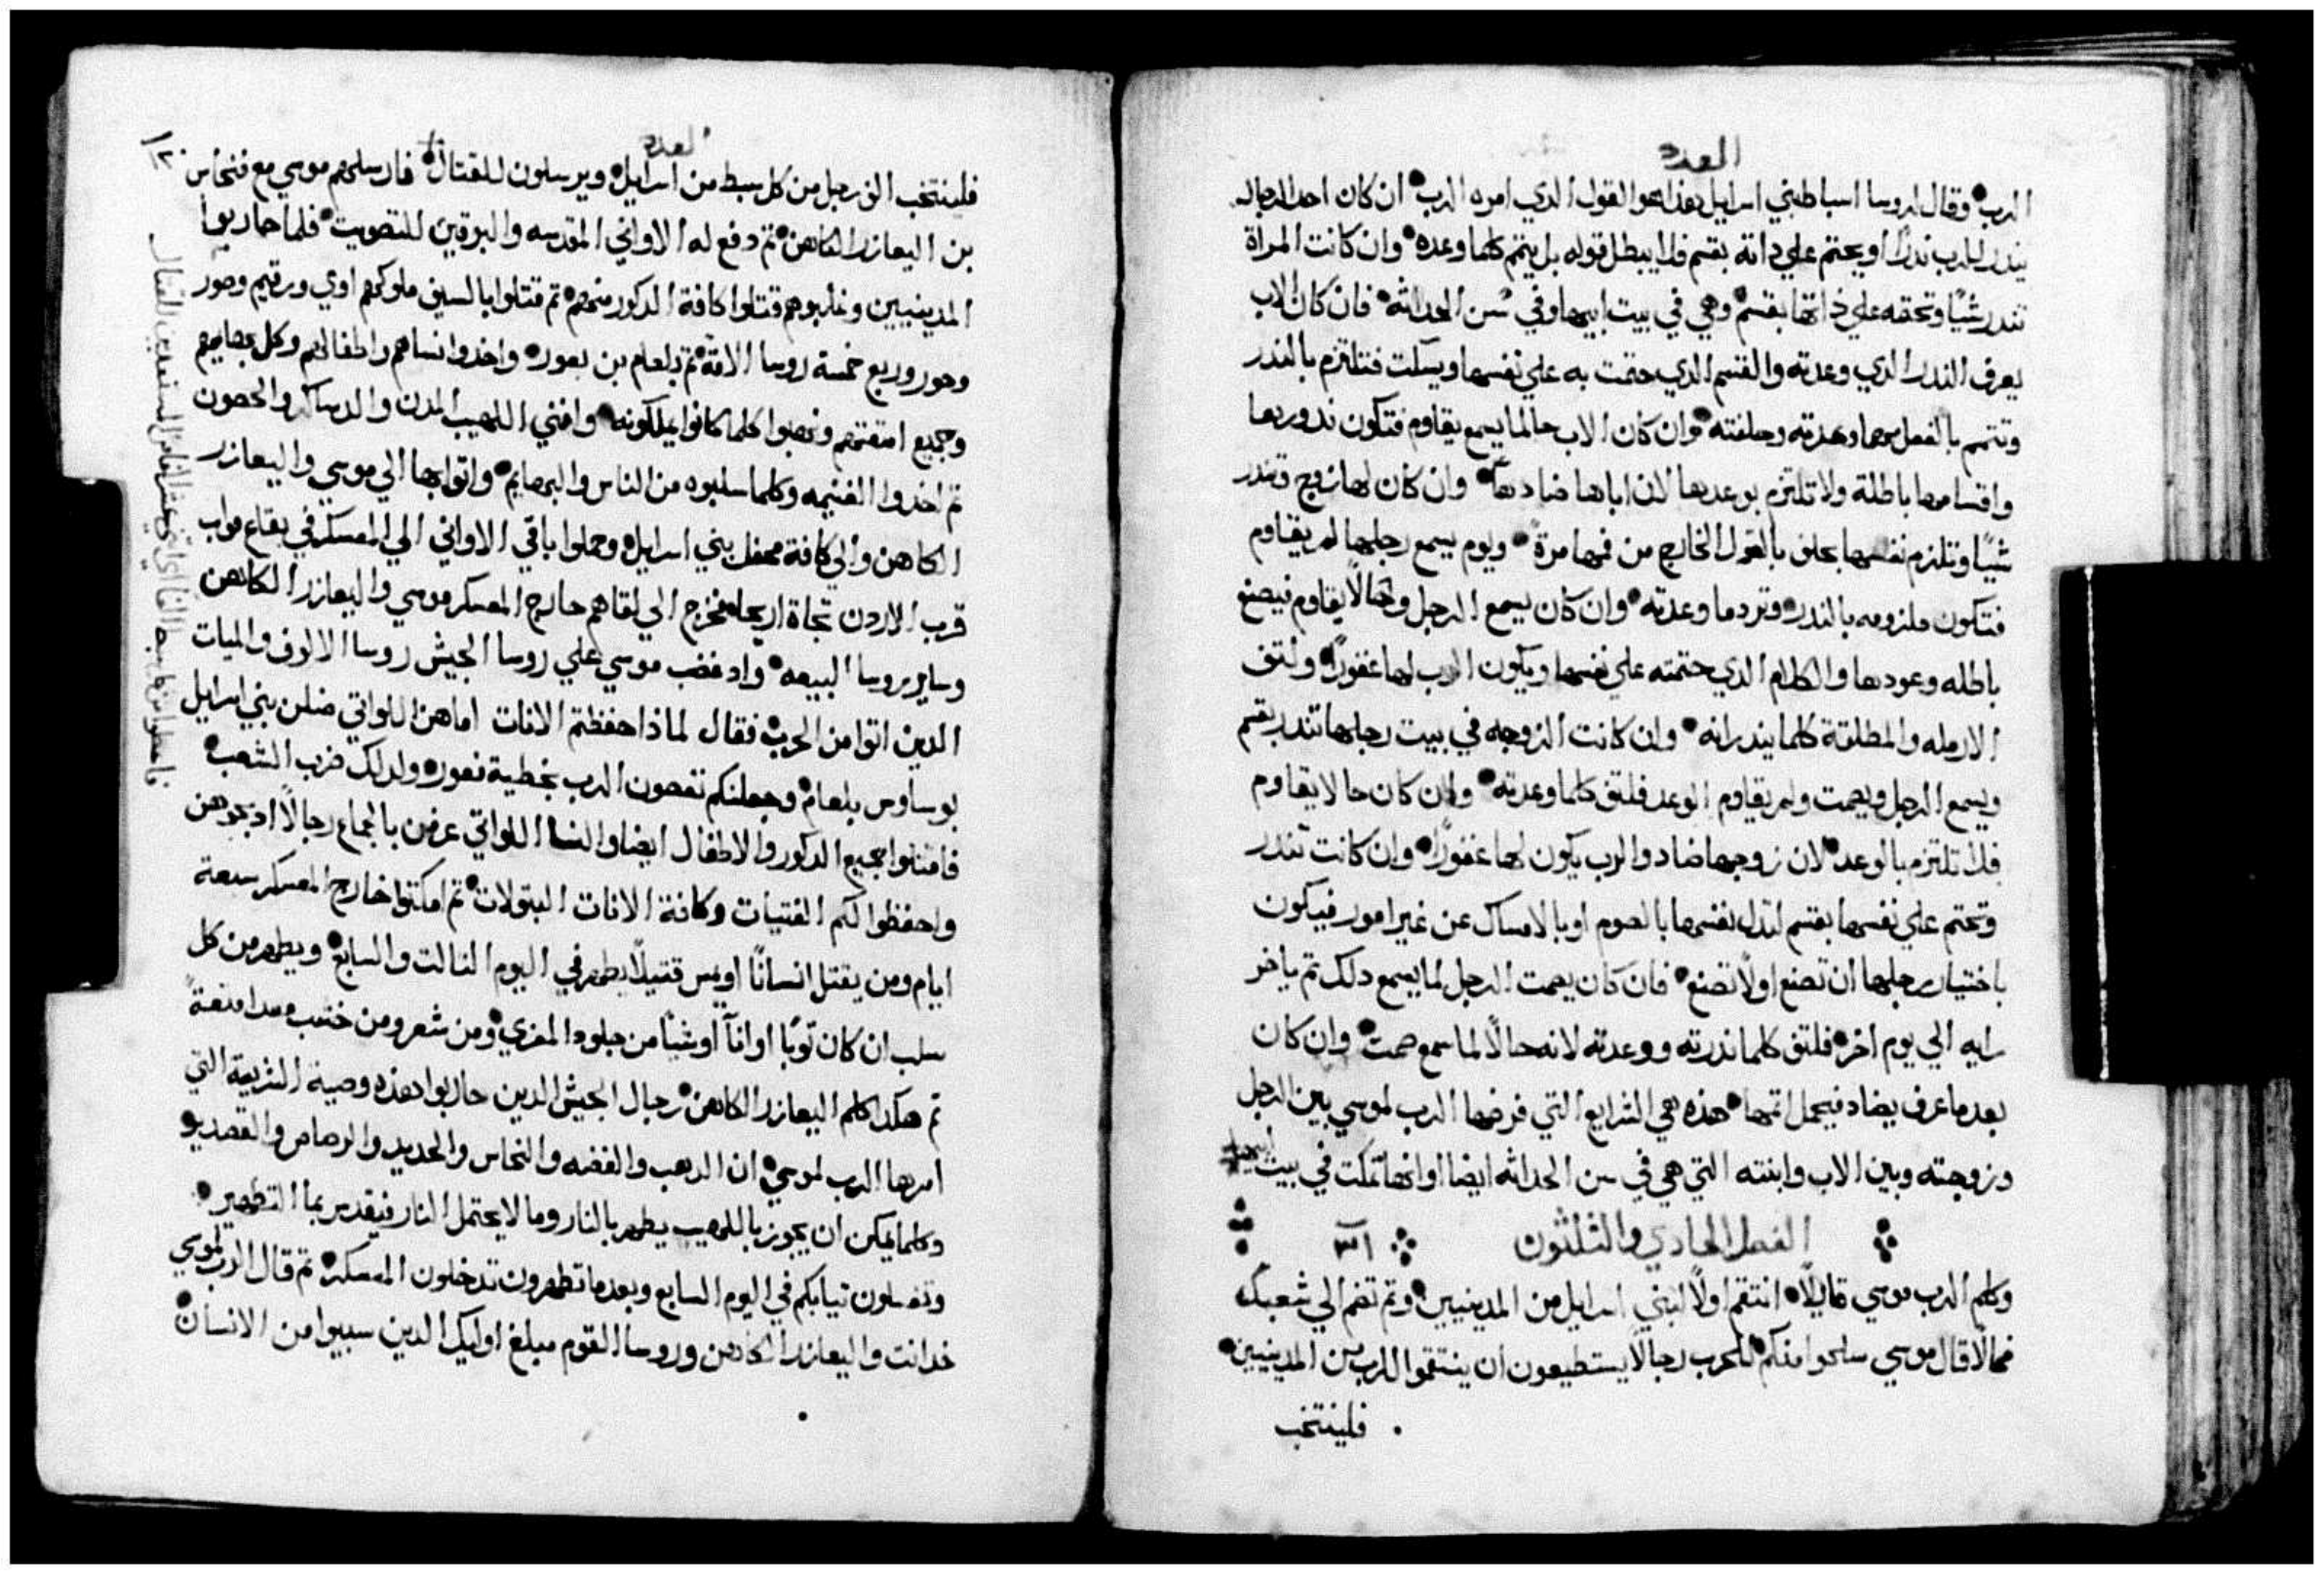 العدد
الرب وقال لروسا اسباط بني اسراييل هذا هو القول الدي امره الرب ان كان احد الرجال
يندر للرب ندرًا او يحتم علي داته بقسم فلا يبطل قوله بل يتمم كلما وعده وان كانت المراة
تندر شيًا وتحقه علي داتها بقسم وهي في بيت ابيها وفي سن الحداثه فان كان الاب
يعرف الندر الدي وعدته والقسم الدي حتمت به علي نفسها ويسكت فتلتزم بالندر
وتتمم بالفعل مهما وعدته وحلفته وان كان الاب حالما يسمع يقاوم فتكون ندورها
واقسامها باطلة ولا تلتزم بوعدها لان اباها ضادها وان كان لها زوج وتندر
شيًا وتلزم نفسها بحلف بالقول الخارج من فمها مرة ويوم يسمع رجلها لم يقاوم
فتكون ملزومه بالندر وترد ما وعدته وان كان يسمع الرجل وحالًا يقاوم فيصنع
باطله وعودها والكلام الدي حتمته علي نفسها ويكون الرب لها غفورًا ولتف
الارمله والمطلقة كلما يندرانه وان كانت الزوجه في بيت رجلها تندر بقسم
ويسمع الرجل ويصمت ولم يقاوم الوعد فلتف كلما وعدته وان كان حالا يقاوم
فلا تلتزم بالوعد لان زوجها ضاد والرب يكون لها غفورًا وان كانت تندر
وتحتم علي نفسها بقسم لتدل نفسها بالصوم او بالامساك عن غير امور فيكون
باختيار رجلها ان تصنع او لا تصنع فان كان يصمت الرجل لما يسمع دلك تم ياخر
رايه الي يوم اخر فلتف كلما ندرته ووعدته لانه حالًا لما سمع صمت وان كان
بعد ما عرف يضاد فيحمل اتمها هذه هي الشرايع التي فرضها الرب لموسي بين الرجل
وزوجته وبين الاب وابنته التي هي في سن الحداثه ايضا او انها تمكت في بيت ابيها
الفصل الحادي والثلثون ٣١
وكلم الرب موسي قايلًا انتقم اولًا لبني اسراييل من المدينيين وتم تضم الي شعبك
فحالًا قال موسي سلحوا منكم للحرب رجالًا يستطيعون ان ينتقموا للرب من المدينيين
فلينتخب
العدد
فلينتخب الف رجل من كل سبط من اسراييل ويرسلون للقتال فارسلهم موسي مع فنحاس
بن اليعازر الكاهن تم دفع له الاواني المقدسه والبوقين للتصويت فلما حاربوا
المدينيين وغلبوهم قتلوا كافة الدكور منهم تم قتلوا بالسيف ملوكهم اوي ورقيم وصور
وحور وربع خمسة روسا الامة تم بلعام بن بعور واخدوا نساهم واطفالهم وكل بهايمهم
وجميع امتعتهم ونهبوا كلما كانوا يملكونه وافني اللهيب المدن والدساكر والحصون
تم اخدوا الغنيمه وكلما سلبوه من الناس والبهايم واتوا بها الي موسي واليعازر
الكاهن والي كافة محفل بني اسراييل وحملوا باقي الاواني الي المعسكر في بقاع مواب
قرب الاردن تجاة اريحا فخرج الي لقاهم خارج المعسكر موسي واليعازر الكاهن
وساير روسا البيعه واد غضب موسي علي روسا الجيش روسا الالوف والميات
الدين اتوا من الحرب فقال لمادا حفظتم الانات اما هن اللواتي ضللن بني اسراييل
بوساوس بلعام وجعلنكم تعصون الرب بخطية فعور ولدلك ضرب الشعب
فاقتلوا جميع الدكور والاطفال ايضا والنسا اللواتي عرفن بالجماع رجالًا ادبحوهن
واحفظوا لكم الفتيات وكافة الانات البتولات تم امكتوا خارج المعسكر سبعة
ايام ومن يقتل انسانًا او يمس قتيلًا يطهر في اليوم التالت والسابع ويطهر من كل
سلب ان كان توبًا او انآً او شيًا من جلود المعزي ومن شعر ومن خشب
تم هكدا كلم اليعازر الكاهن رجال الجيش الدين حاربوا هذه وصية الشريعة التي
امرها الرب لموسي ان الدهب والفضه والنحاس والحديد والرصاص والقصدير
وكلما يمكن ان يجوز باللهيب يطهر بالنار وما لا يحتمل النار فيقدس بما التطهير
وتغسلون تيابكم في اليوم السابع وبعد ما تطهرون تدخلون المعسكر تم قال الرب لموسي
خد انت واليعازر الكاهن وروسا القوم مبلغ اوليك الدين سبيوا من الانسان
فاعطوا من كل سبط الفا اي اثني عشر الفا من المستعدين للقتال